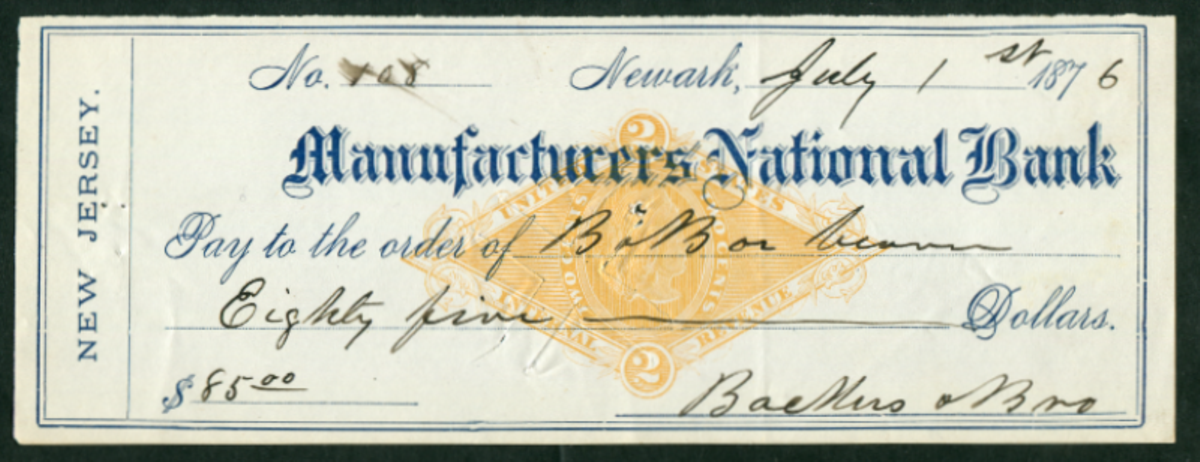 NEW JERSEY.
No. 108 Newark, July 1 st 1876
Manufacturers National Bank
Pay to the order of B & B or
Eighty five Dollars.
$ 85 00
& Bro
2
UNITED STATES
TWO CENTS
INTERNAL REVENUE
2